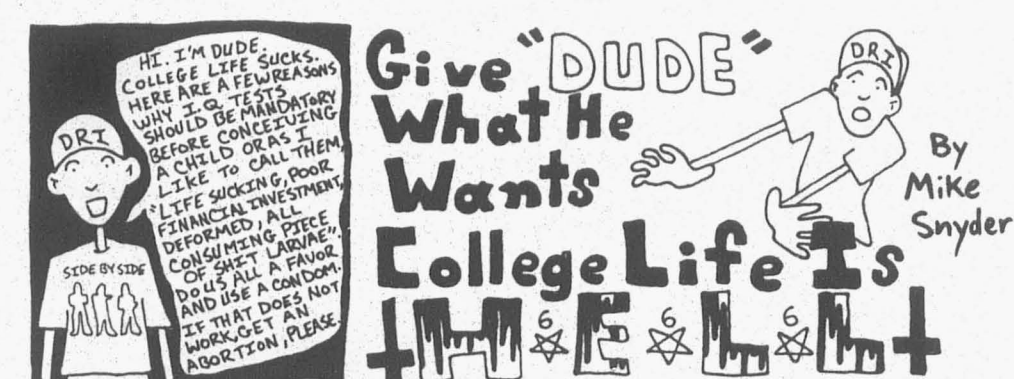 HI. I'M DUDE.
COLLEGE LIFE SUCKS.
HERE ARE A FEW REASONS
WHY I.Q TESTS
SHOULD BE MANDATORY
BEFORE CONCEIVING
A CHILD OR AS I
LIKE TO CALL THEM,
"LIFE SUCKING, POOR
FINANCIAL INVESTMENT,
DEFORMED, ALL
CONSUMING PIECE
OF SHIT LARVAE".
DO US ALL A FAVOR
AND USE A CONDOM.
IF THAT DOES NOT
WORK, GET AN
ABORTION, PLEASE.
DRI
SIDE BY SIDE
Give "DUDE"
What He
Wants
College Life Is
H 6 E 6 L 6 L
DRI
By
Mike
Snyder